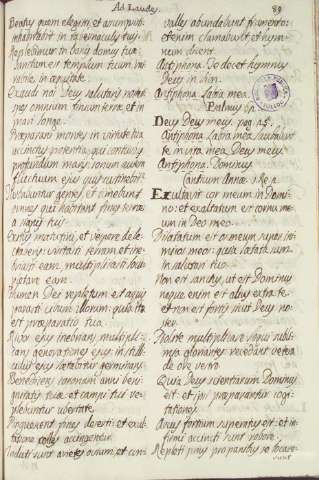 Ad Laudes.
89
Beatus quem elegisti, et assumpsisti:
inhabitabit in tabernaculis tuis.
Replebimur in bonis domus tuæ:
Sanctum est templum tuum, mi-
rabile in æquitate.
Exaudi nos Deus salutaris noster
spes omnium finium terræ, et in
mari longe.
Præparans montes in virtute tua
accinctus potentia: qui conturbas
profundum maris sonum
fluctuum ejus
Turbabuntur gentes, et timebunt
qui habitant fines terræ
a signis tuis:
Exitus matutini, et vespere dele-
ctabis: visitasti terram, et ine-
briasti eam, multiplicasti locu-
pletare eam.
Flumen Dei repletum est aquis
parasti cibum illorum: quia ita
est præparatio tua.
Rivos ejus inebrians, multipli-
ca generationes ejus: in stilli-
cidiis ejus lætabitur germinans
Benedices coronæ anni beni-
gnitatis tuæ: et campi tui re-
plebuntur ubertate.
Pinguescent speciosa deserti: et exul-
tatione colles accingentur.
Induti sunt arietes ovium, et con-
valles abundabunt frumento:
etenim clamabunt et hym-
num dicent.
Antiphona. Te decet hymnus
Deus in Sion.
Antiphona. Labia mea.
Psalmus
Deus Deus meus. pag.
Antiphona. Labia mea laudabunt
te in vita mea, Deus meus.
Antiphona. Dominus
Canticum Annæ
Exultavit cor meum in Domi-
no: et exaltatum est cornu me-
um in Deo meo.
Dilatatum est os meum super ini-
micos meos: quia lætata sum
in salutari tuo.
Non est sanctus, ut est Dominus
neque enim est alius extra te,
et non est fortis sicut Deus no-
ster.
Nolite multiplicare loqui subli-
mia, gloriantes: recedant vetera
de ore vestro
Quia Deus scientiarum Dominus
est: et ipsi præparantur cogi-
tationes.
Arcus fortium superatus est: et in-
firmi accincti sunt robore.
Repleti prius pro panibus se locave-
runt